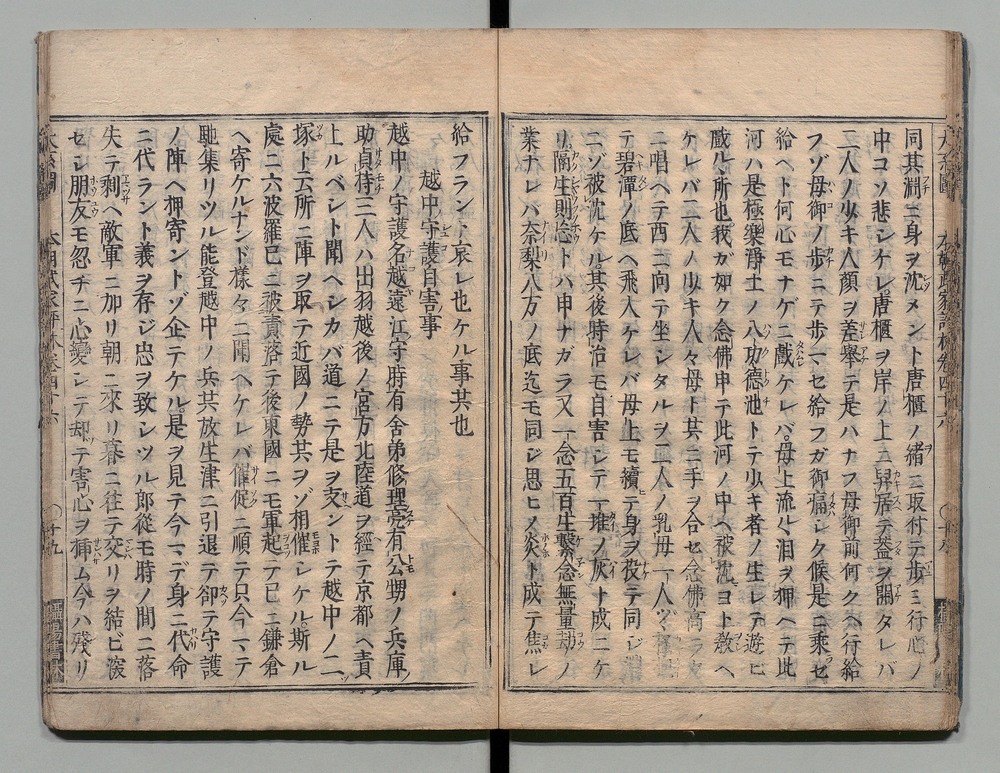 同其淵ニ身ヲ沈メント唐櫃ノ緒ニ取付テ歩ミ行心ノ
中コソ悲シケレ唐櫃ヲ岸ノ上ニ舁居テ蓋ヲ開タレバ
二人ノ少キ人顔ヲ差挙テ是ハナフ母御前何クヘ行給
フゾ母御ノ歩ニテ歩マセ給フガ御痛シク候是ニ乗セ
給ヘト何心モナゲニ戯ケレバ母上流ルヽ泪ヲ押ヘテ此
河ハ是極樂淨土ノ八功德池トテ少キ者ノ生レテ遊ヒ
戯ルヽ所也我ガ如ク念佛申テ此河ノ中ヘ被沈ヨト敎ヘ
ケレバ二人ノ少キ人々母ト共ニ手ヲ合セ念佛高ラカ
ニ唱ヘテ西ニ向テ坐シタルヲ二人ノ乳母一人ヅヽ
テ碧潭ノ底ヘ飛入ケレバ母上モ續テ身ヲ投テ同ジ
ニゾ被沈ケル其後時治モ自害シテ一堆ノ灰ト成ニケ
リ隔生則忘トハ申ナガラ又一念五百生繫念無量劫ノ
業ナレバ奈梨八万ノ底迄モ同シ思ヒノ炎ト成テ焦レ
給フラント哀レ也ケル事共也
越中ノ守護自害事
越中ノ守護名越遠江守時有舍弟修理亮有公甥ノ兵庫
助貞持三人ハ出羽越後ノ宮方北陸道ヲ經テ京都ヘ責
上ルベシト聞ヘシカバ道ニテ是ヲ支ントテ越中ノ二
塚ト云所ニ陣ヲ取テ近國ノ勢共ヲゾ相催シケル斯ル
處ニ六波羅已ニ被責落テ後東國ニモ軍起テ已ニ鎌倉
ヘ寄ケルナンド樣々ニ聞ヘケレバ催促ニ順テ只今マテ
馳集リツル能登越中ノ兵共放生津ニ引退テ却テ守護
ノ陣ヘ押寄ントゾ企テケル是ヲ見テ今マデ身ニ代命
ニ代ラント義ヲ存ジ忠ヲ致シツル郎從モ時ノ間ニ落
失テ剩ヘ敵軍ニ加リ朝ニ來リ暮ニ往テ交リヲ結ビ
セシ朋友モ忽チニ心變シテ却テ害心ヲ挿ム今ハ殘リ